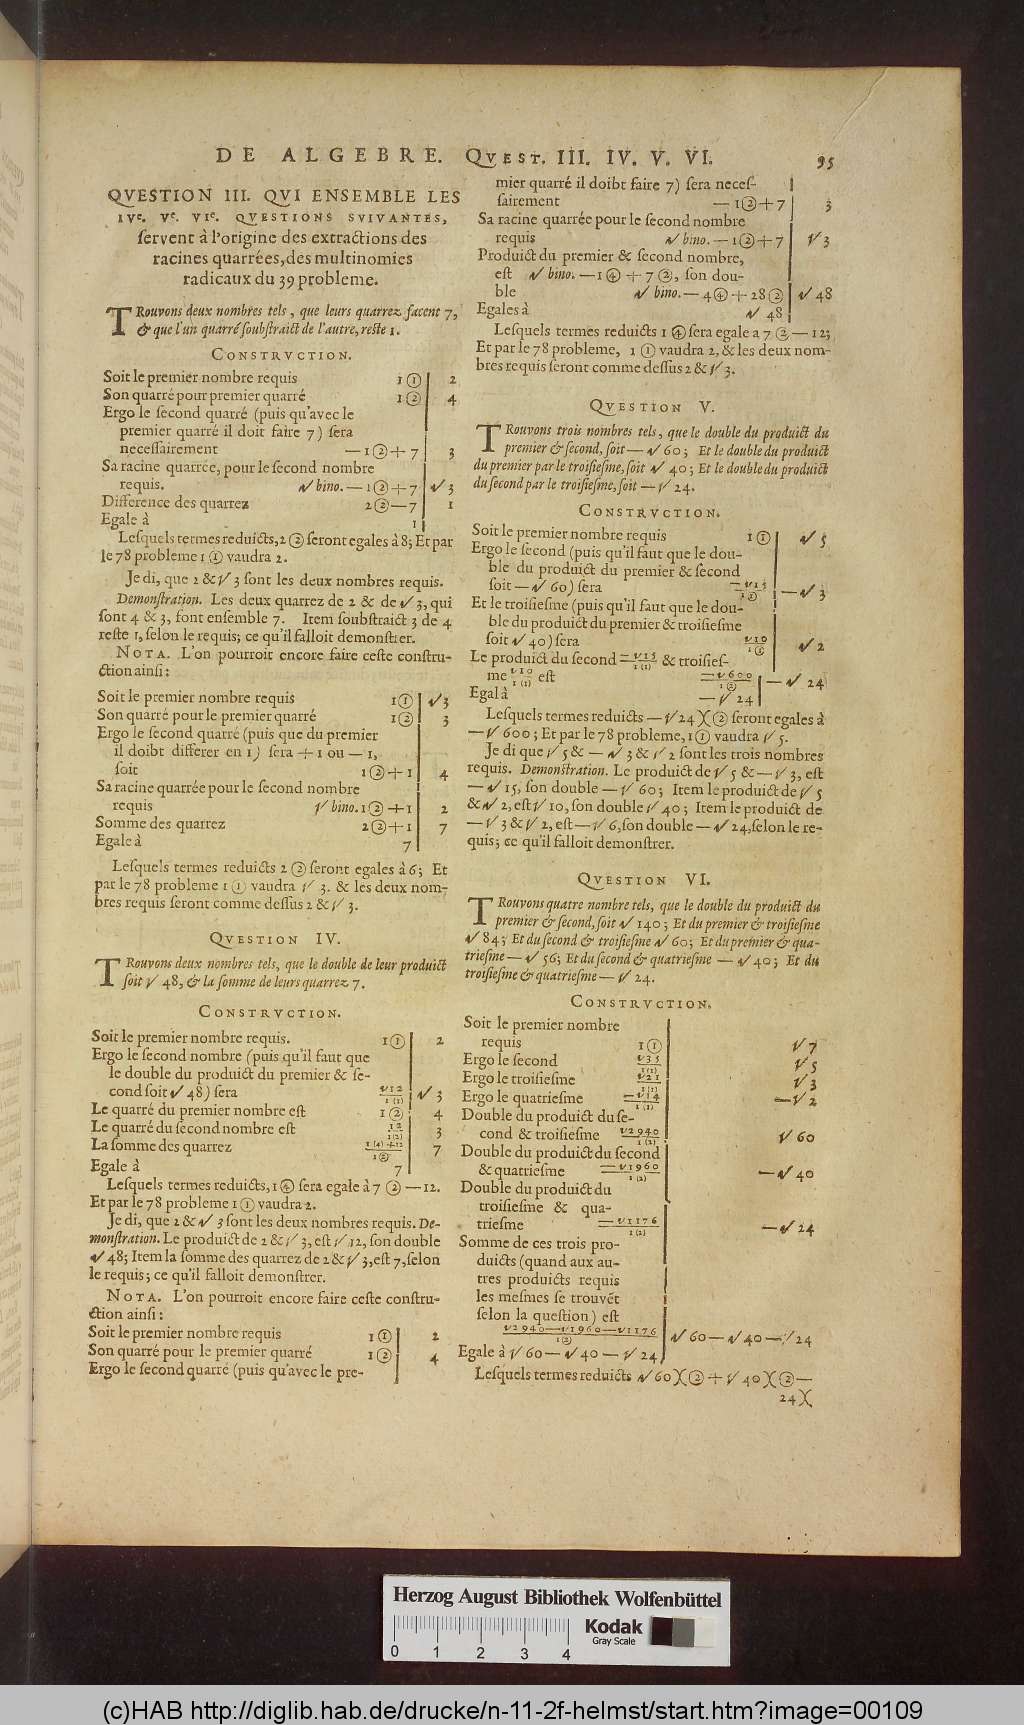 DE ALGEBRE. QVEST. III. IV. V. VI. 95
QVESTION III. QVI ENSEMBLE LES
IVe. Ve. VIe. QVESTIONS SVIVANTES,
ſervent à l'origine des extractions des
racines quarrées, des multinomies
radicaux du 39 probleme.
TRouvons deux nombres tels, que leurs quarrez facent 7,
& que l'un quarré ſoubſtraict de l'autre, reſte 1.
CONSTRVCTION.
Soit le premier nombre requis 1 ① 2
Son quarré pour premier quarré 1 ② 4
Ergo le ſecond quarré (puis qu'avec le
premier quarré il doit faire 7) ſera
neceſſairement — 1 ② + 7 3
Sa racine quarrée, pour le ſecond nombre
requis. √ bino. — 1 ② + 7 √ 3
Difference des quarrez 2 ② — 7 1
Egale à 1
Leſquels termes reduicts, 2 ② ſeront egales à 8; Et par
le 78 probleme 1 ① vaudra 2.
Je di, que 2 & √ 3 ſont les deux nombres requis.
Demonſtration. Les deux quarrez de 2 & de √ 3, qui
ſont 4 & 3, font enſemble 7. Item ſoubſtraict 3 de 4
reſte 1, ſelon le requis; ce qu'il falloit demonſtrer.
NOTA. L'on pourroit encore faire ceſte conſtru-
ction ainſi:
Soit le premier nombre requis 1 ① √ 3
Son quarré pour le premier quarré 1 ② 3
Ergo le ſecond quarré (puis que du premier
il doibt differer en 1) ſera + 1 ou — 1,
ſoit 1 ② + 1 4
Sa racine quarrée pour le ſecond nombre
requis √ bino. 1 ② + 1 2
Somme des quarrez 2 ② + 1 7
Egale à 7
Leſquels termes reduicts 2 ② ſeront egales à 6; Et
par le 78 probleme 1 ① vaudra √ 3. & les deux nom-
bres requis ſeront comme deſſus 2 & √ 3.
QVESTION IV.
TRouvons deux nombres tels, que le double de leur produict
ſoit √ 48, & la ſomme de leurs quarrez 7.
CONSTRVCTION.
Soit le premier nombre requis. 1 ① 2
Ergo le ſecond nombre (puis qu'il faut que
le double du produict du premier & ſe-
cond ſoit √ 48) ſera √12 / 1(1) √ 3
Le quarré du premier nombre eſt 1 ② 4
Le quarré du ſecond nombre eſt 12 / 1(2) 3
La ſomme des quarrez 1(4)+12 / 1② 7
Egale à 7
Leſquels termes reduicts, 1 ④ ſera egale à 7 ② — 12.
Et par le 78 probleme 1 ① vaudra 2.
Je di, que 2 & √ 3 ſont les deux nombres requis. De-
monſtration. Le produict de 2 & √ 3, eſt √ 12, ſon double
√ 48; Item la ſomme des quarrez de 2 & √ 3, eſt 7, ſelon
le requis; ce qu'il falloit demonſtrer.
NOTA. L'on pourroit encore faire ceſte conſtru-
ction ainſi:
Soit le premier nombre requis 1 ① 2
Son quarré pour le premier quarré 1 ② 4
Ergo le ſecond quarré (puis qu'avec le pre-
mier quarré il doibt faire 7) ſera neceſ-
ſairement — 1 ② + 7 3
Sa racine quarrée pour le ſecond nombre
requis √ bino. — 1 ② + 7 √ 3
Produict du premier & ſecond nombre,
eſt √ bino. — 1 ④ + 7 ②, ſon dou-
ble √ bino. — 4 ④ + 28 ② √ 48
Egales à √ 48
Leſquels termes reduicts 1 ④ ſera egale a 7 ② — 12;
Et par le 78 probleme, 1 ① vaudra 2, & les deux nom-
bres requis ſeront comme deſſus 2 & √ 3.
QVESTION V.
TRouvons trois nombres tels, que le double du produict du
premier & ſecond, ſoit — √ 60; Et le double du produict
du premier par le troiſieſme, ſoit √ 40; Et le double du produict
du ſecond par le troiſieſme, ſoit — √ 24.
CONSTRVCTION.
Soit le premier nombre requis 1 ① √ 5
Ergo le ſecond (puis qu'il faut que le dou-
ble du produict du premier & ſecond
ſoit — √ 60) ſera — √15 / 1① — √ 3
Et le troiſieſme (puis qu'il faut que le dou-
ble du produict du premier & troiſieſme
ſoit √ 40) ſera √10 / 1① √ 2
Le produict du ſecond — √15 / 1(1) & troiſieſ-
me √10 / 1(1) eſt — √600 / 1② — √ 24
Egal à — √ 24
Leſquels termes reduicts — √ 24 )( ② ſeront egales à
— √ 600; Et par le 78 probleme, 1 ① vaudra √ 5.
Je di que √ 5 & — √ 3 & √ 2 ſont les trois nombres
requis. Demonſtration. Le produict de √ 5 & — √ 3, eſt
— √ 15, ſon double — √ 60; Item le produict de √ 5
& √ 2, eſt √ 10, ſon double √ 40; Item le produict de
— √ 3 & √ 2, eſt — √ 6, ſon double — √ 24, ſelon le re-
quis; ce qu'il falloit demonſtrer.
QVESTION VI.
TRouvons quatre nombre tels, que le double du produict du
premier & ſecond, ſoit √ 140; Et du premier & troiſieſme
√ 84; Et du ſecond & troiſieſme √ 60; Et du premier & qua-
trieſme — √ 56; Et du ſecond & quatrieſme — √ 40; Et du
troiſieſme & quatrieſme — √ 24.
CONSTRVCTION.
Soit le premier nombre
requis 1 ① √ 7
Ergo le ſecond √35 / 1(1) √ 5
Ergo le troiſieſme √21 / 1(1) √ 3
Ergo le quatrieſme — √14 / 1(1) — √ 2
Double du produict du ſe-
cond & troiſieſme √2940 / 1(2) √ 60
Double du produict du ſecond
& quatrieſme — √1960 / 1(2) — √ 40
Double du produict du
troiſieſme & qua-
trieſme — √1176 / 1(2) — √ 24
Somme de ces trois pro-
duicts (quand aux au-
tres produicts requis
les meſmes ſe trouvēt
ſelon la queſtion) eſt
√2940 — √1960 — √1176 / 1(2) √ 60 — √ 40 — √ 24
Egale à √ 60 — √ 40 — √ 24
Leſquels termes reduicts √ 60 )( ② + √ 40 )( ② —
24 )(
Herzog August Bibliothek Wolfenbüttel
0 1 2 3 4
Kodak
Gray Scale
(c)HAB http://diglib.hab.de/drucke/n-11-2f-helmst/start.htm?image=00109